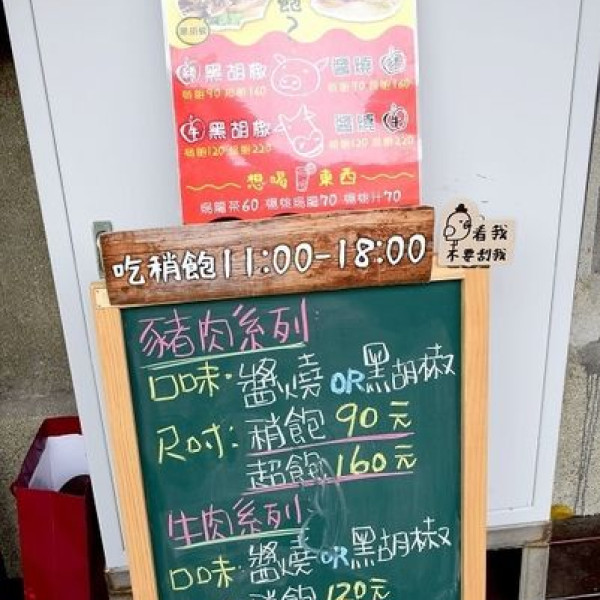 飽
黑胡椒
豬 黑胡椒 醬燒 豬
稍飽90 超飽160 稍飽90 超飽160
牛 黑胡椒 醬燒 牛
稍飽120 超飽220 稍飽120 超飽220
想喝東西
烏龍茶60 楊桃烏龍70 楊桃汁70
吃稍飽11:00-18:00
看我
不要刮我
豬肉系列:
口味:醬燒OR黑胡椒
尺吋:稍飽90元
超飽160元
牛肉系列:
口味:醬燒OR黑胡椒
稍飽120元